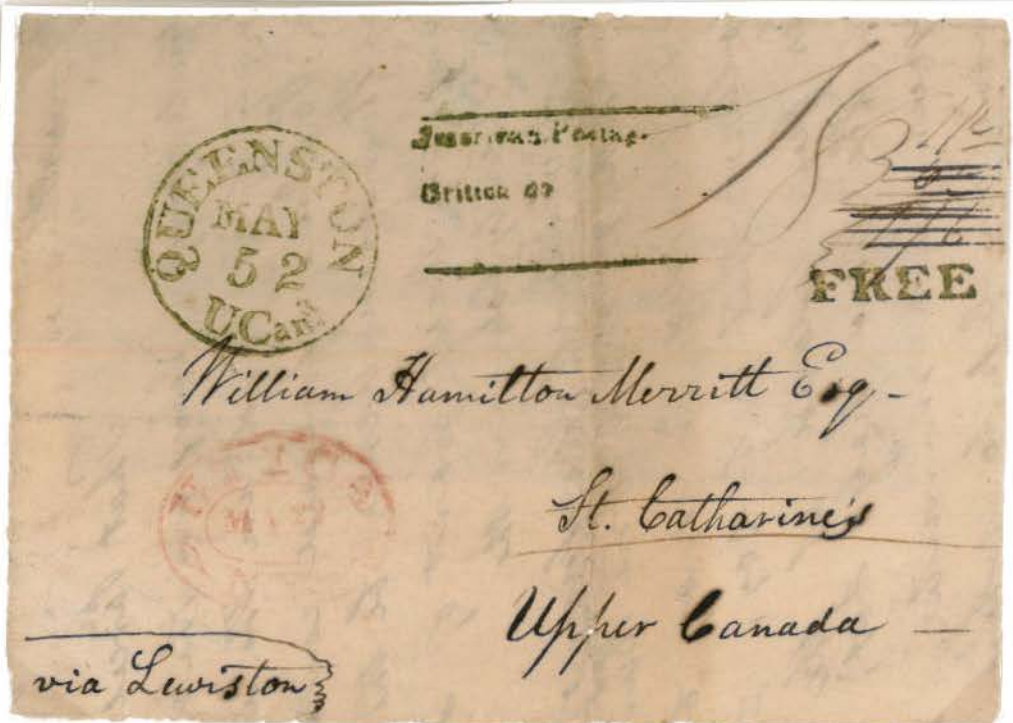 QUEENSTON
MAY
52
UCan
American Postage
British do
18
FREE
William Hamilton Merritt Esq -
St. Catharine's
Upper Canada —
via Lewiston